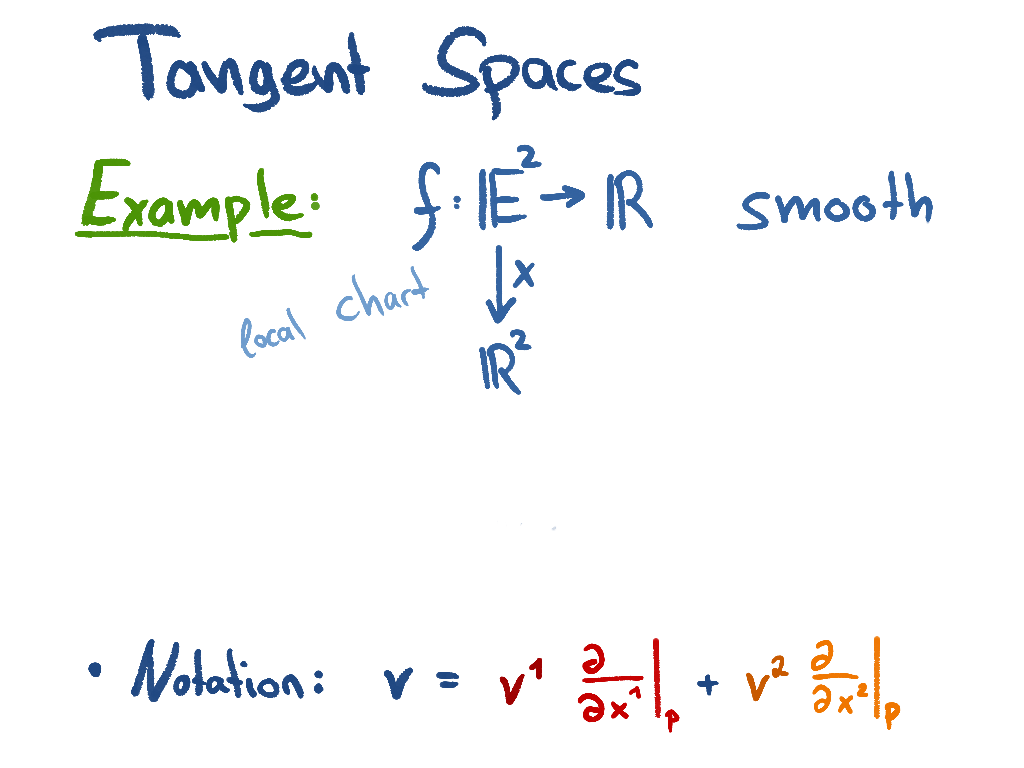 Tangent Spaces
Example: f: 𝔼² → ℝ smooth
↓ x
local chart
ℝ²
• Notation: v = v¹ ∂/∂x¹|ₚ + v² ∂/∂x²|ₚ